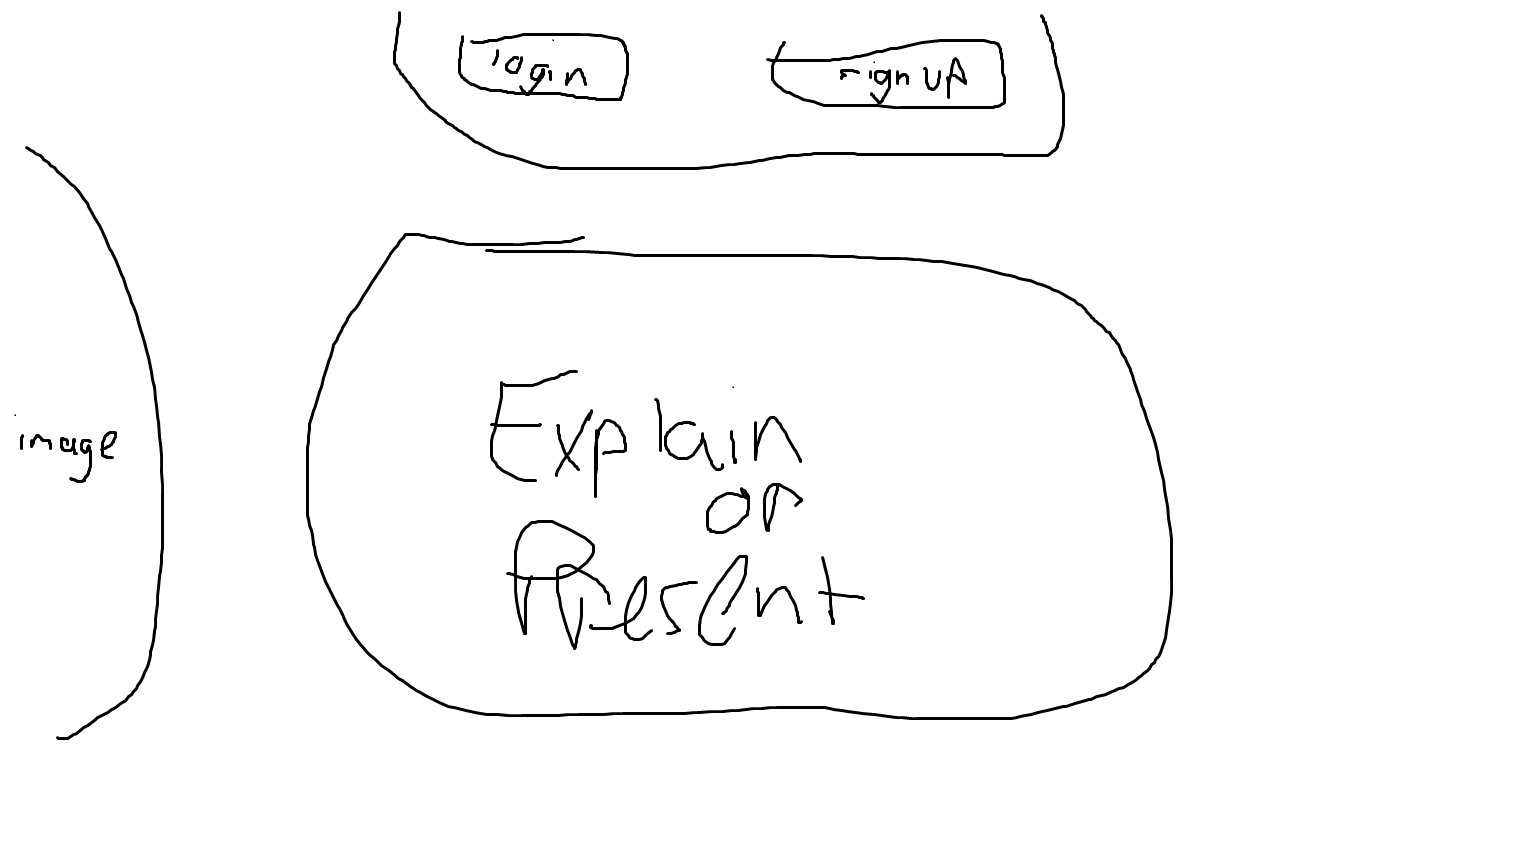 login
sign up
image
Explain
or
Present